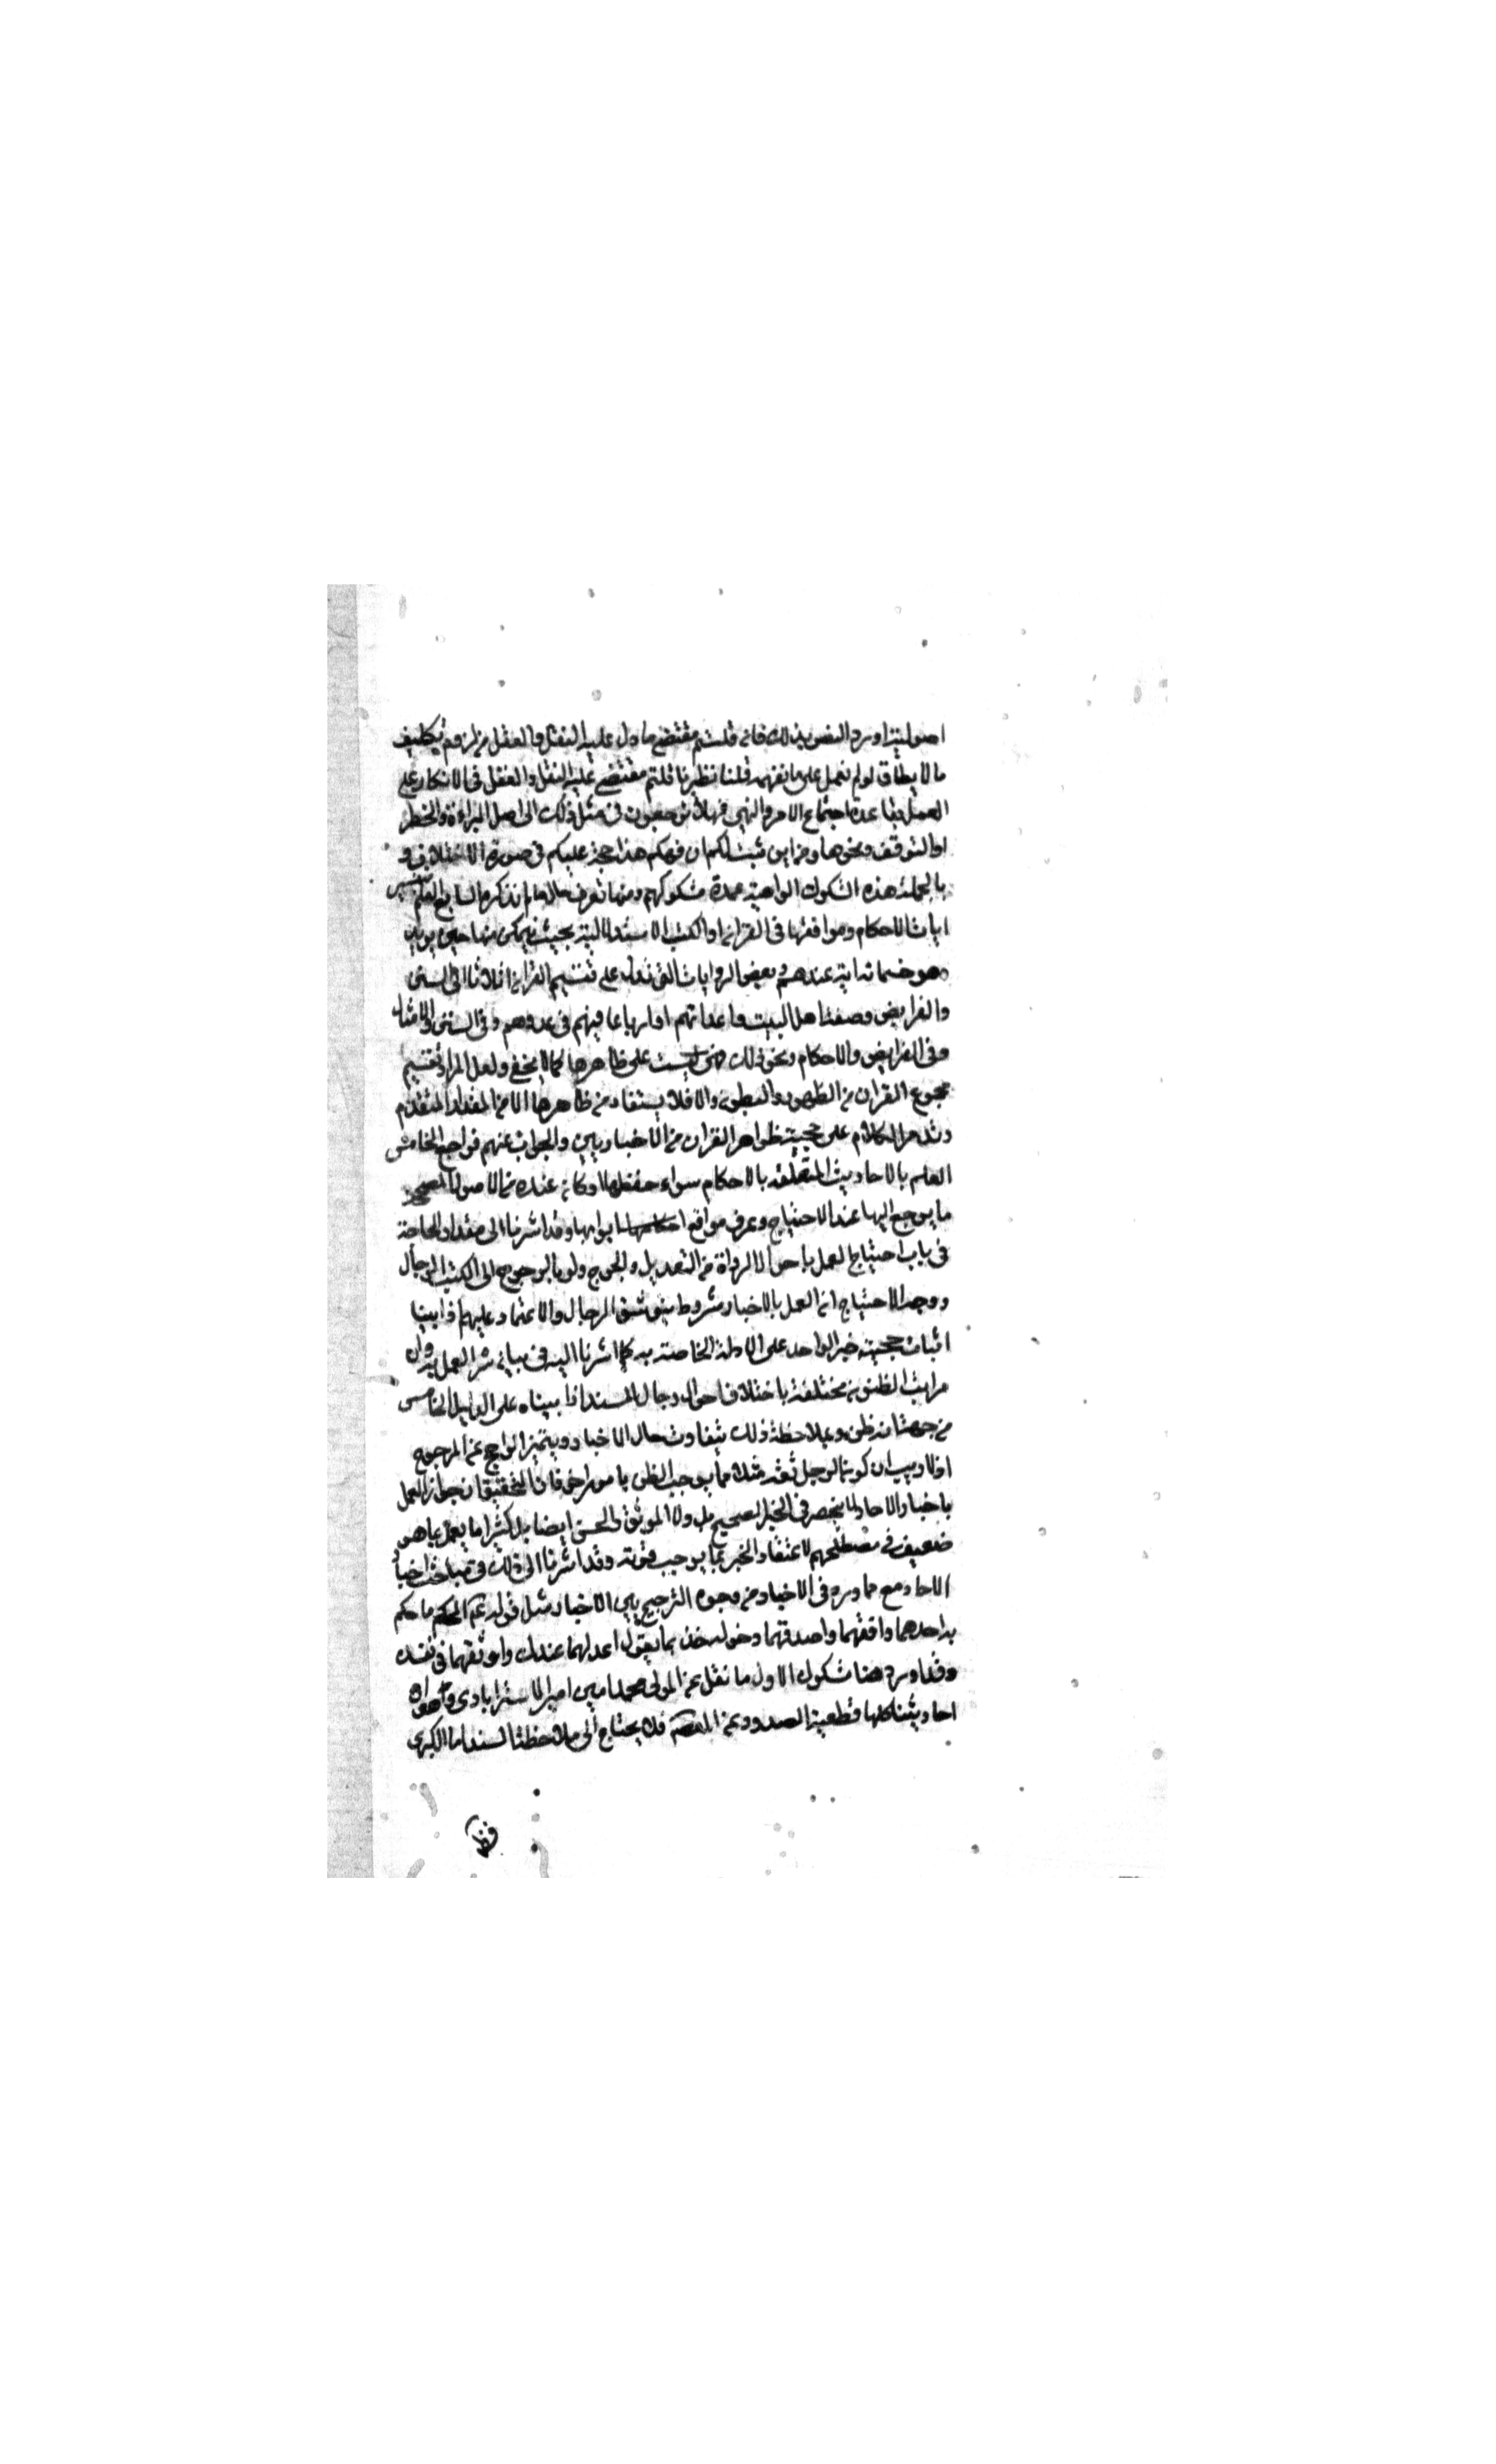 اصولية او يرد النص بذلك فان قلتم مقتضى ما دل عليه النقل والعقل من لزوم تكليف
ما لا يطاق لو لم نعمل على ما نفهمه قلنا نظيرنا قلتم مقتضى عليه النقل والعقل في الانكار على
العمل بقاعدة اجتماع الامر والنهي فهلا ترجعون في مثل ذلك الى اصل البراءة والحظر
او التوقف ونحوها ومن اين ثبت لكم ان فهمكم هذا حجة عليكم في صورة الاختلاف و
بالجملة هذه الشكوك الواهية عمدة شكوكهم ومنها تعرف حال ما لم نذكره السابع العلم بتفسير
ايات الاحكام ومواقعها في القران او الكتب الاستدلالية بحيث يتمكن منها حين يريد
وهو خمسمائة اية عندهم وبعض الروايات التي تدل على تقسيم القران اثلاثا او في السنن
والفرايض وصفة اهل البيت واعدائهم او ارباعا فيهم في عدوهم وفي السنن والامثال
وفي الفرايض والاحكام ونحو ذلك فهي ليست على ظاهرها كما لا يخفى ولعل المراد تقسيم
مجموع القران من الظهور والبطون والا فلا يستفاد من ظاهرها الا من المقدار المتقدم
وقد مر الكلام على حجية ظواهر القران من الاخباريين والجواب عنهم فراجع الخامس
العلم بالاحاديث المتعلقة بالاحكام سواء حفظها او كان عنده من الاصول المصححة
ما يرجع اليها عند الاحتياج وعرف مواقع ابوابها وقد اشرنا الى مقدار الحاجة
في باب احتياج العمل باحوال الرواة من التعديل والجرح ولو بالرجوع الى الكتب الرجال
ووجه الاحتياج ان العمل بالاخبار مشروط بتوثيق الرجال والاعتماد عليهم اذا بينا
اثبات حجية خبر الواحد على الادلة الخاصة به كما اشرنا اليه في بيان شرائط العمل به وان
مراتب الظنون مختلفة باختلاف احوال رجال المسند اذا بيناه على الدليل الخامس
من جهة انه ظن وبملاحظة ذلك يتفاوت حال الاخبار ويتميز الراجح عن المرجوح
او لا وبين ان كون الرجل ثقة مثلا مما يوجب الظن بامور اخر فان التحقيق ان جواز العمل
باخبار الاحاد لا ينحصر في الخبر الصحيح بل ولا الموثق والحسن ايضا بل كثيرا ما يعمل بما هو
ضعيف في مصطلحهم لاعتضاد الخبر بما يوجب قوته وقد اشرنا الى ذلك في مباحث اخبار
الاحاد مع ما ورد في الاخبار من وجوه الترجيح بين الاخبار مثل قوله عم الحكم ما حكم
به اعدلهما وافقههما واصدقهما وقوله خذ بما يقول اعدلهما عندك واوثقهما في نفسك
وقد اورد هنا شكوك الاول ما نقل عن المولى محمد امين الاسترابادي وهو ان
احاديثنا كلها قطعية الصدور عن المعصوم فلا يحتاج الى ملاحظة السند اما الكبرى